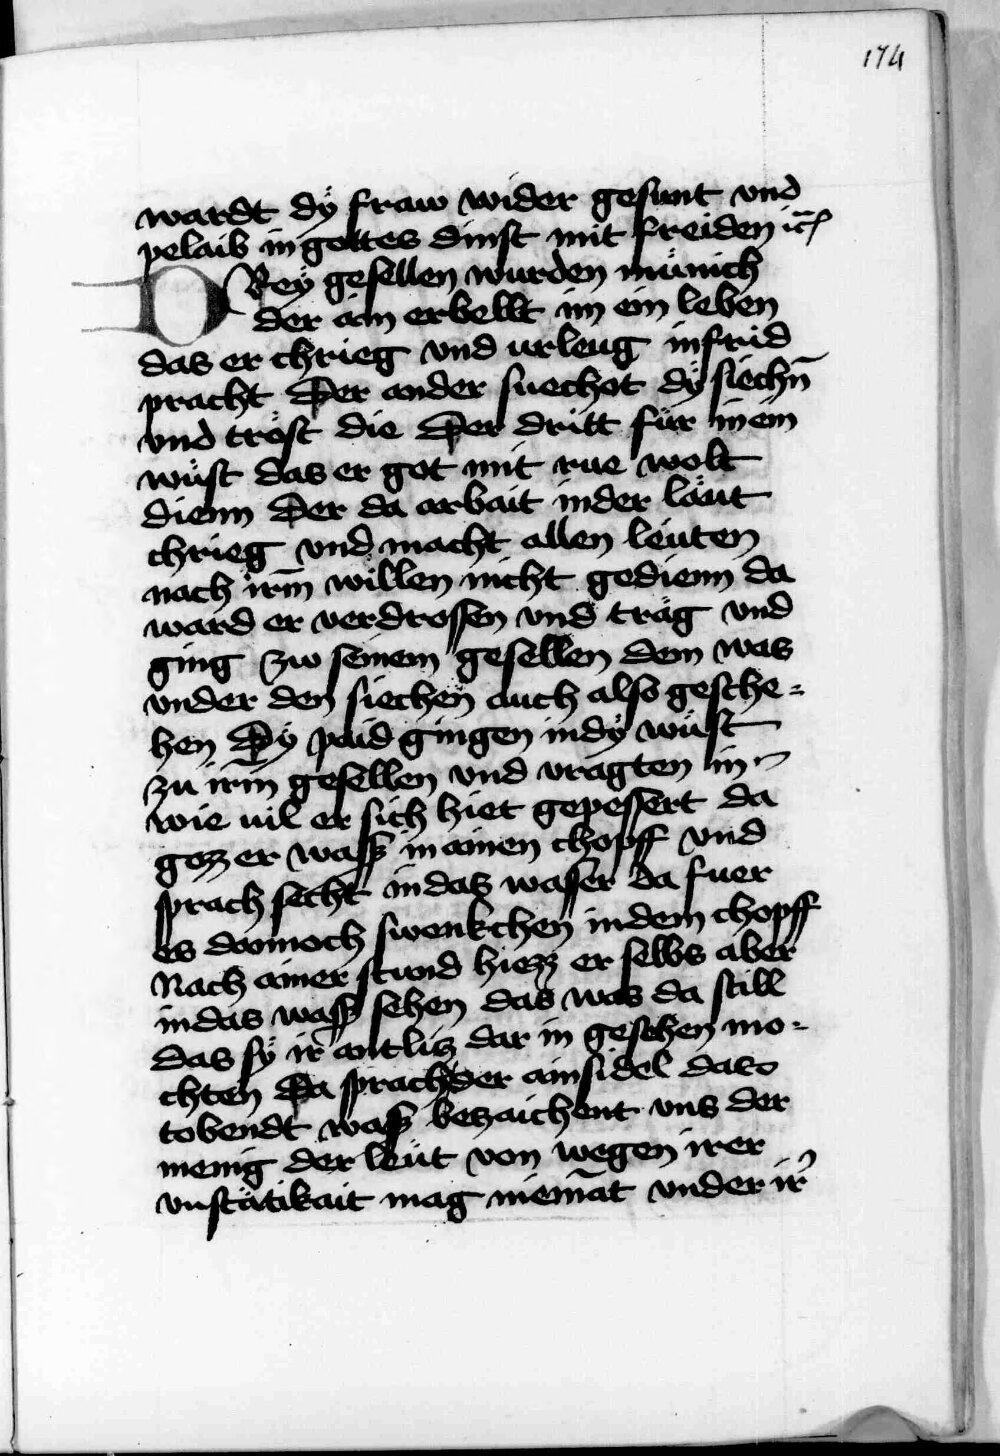 174
wardt dÿ fraw wider gesunt vnd
pelaib in gottes dinst mit freiden
DReÿ gesellen wurden münich
der ain erbellt im ein leben
das er chrieg vnd urleug in frid
pracht Der ander suechet dÿ siechn̄
vnd tröst die Der dritt für in ein
wüst das er got mit rue wolt
dienn Der da arbait in der läut
chrieg vnd macht allen leüten
nach irm̄ willen nicht gedienn da
ward er verdrossen vnd träg vnd
ging zw seinem gesellen dem was
vnder den siechen auch also gesche=
hen Dÿ paid gingen in dÿ wüst
zu irm gesellen vnd vragten in
wie uil er sich hiet gepessert da
gozz er wasß in ainen chopff vnd
sprach secht in das wasser da fuer
es dannoch swenkchen in dem chopff
Nach ainer stund hiezz er selbs aber
in das wasß sehen das was da still
das sÿ ir antlitz dar in gesehen mo=
chten Da sprach der ainsidel das
tobendt wasß bezaichent uns der
menig der leüt von wegen irer
vnstätikait mag niemāt vnder ir